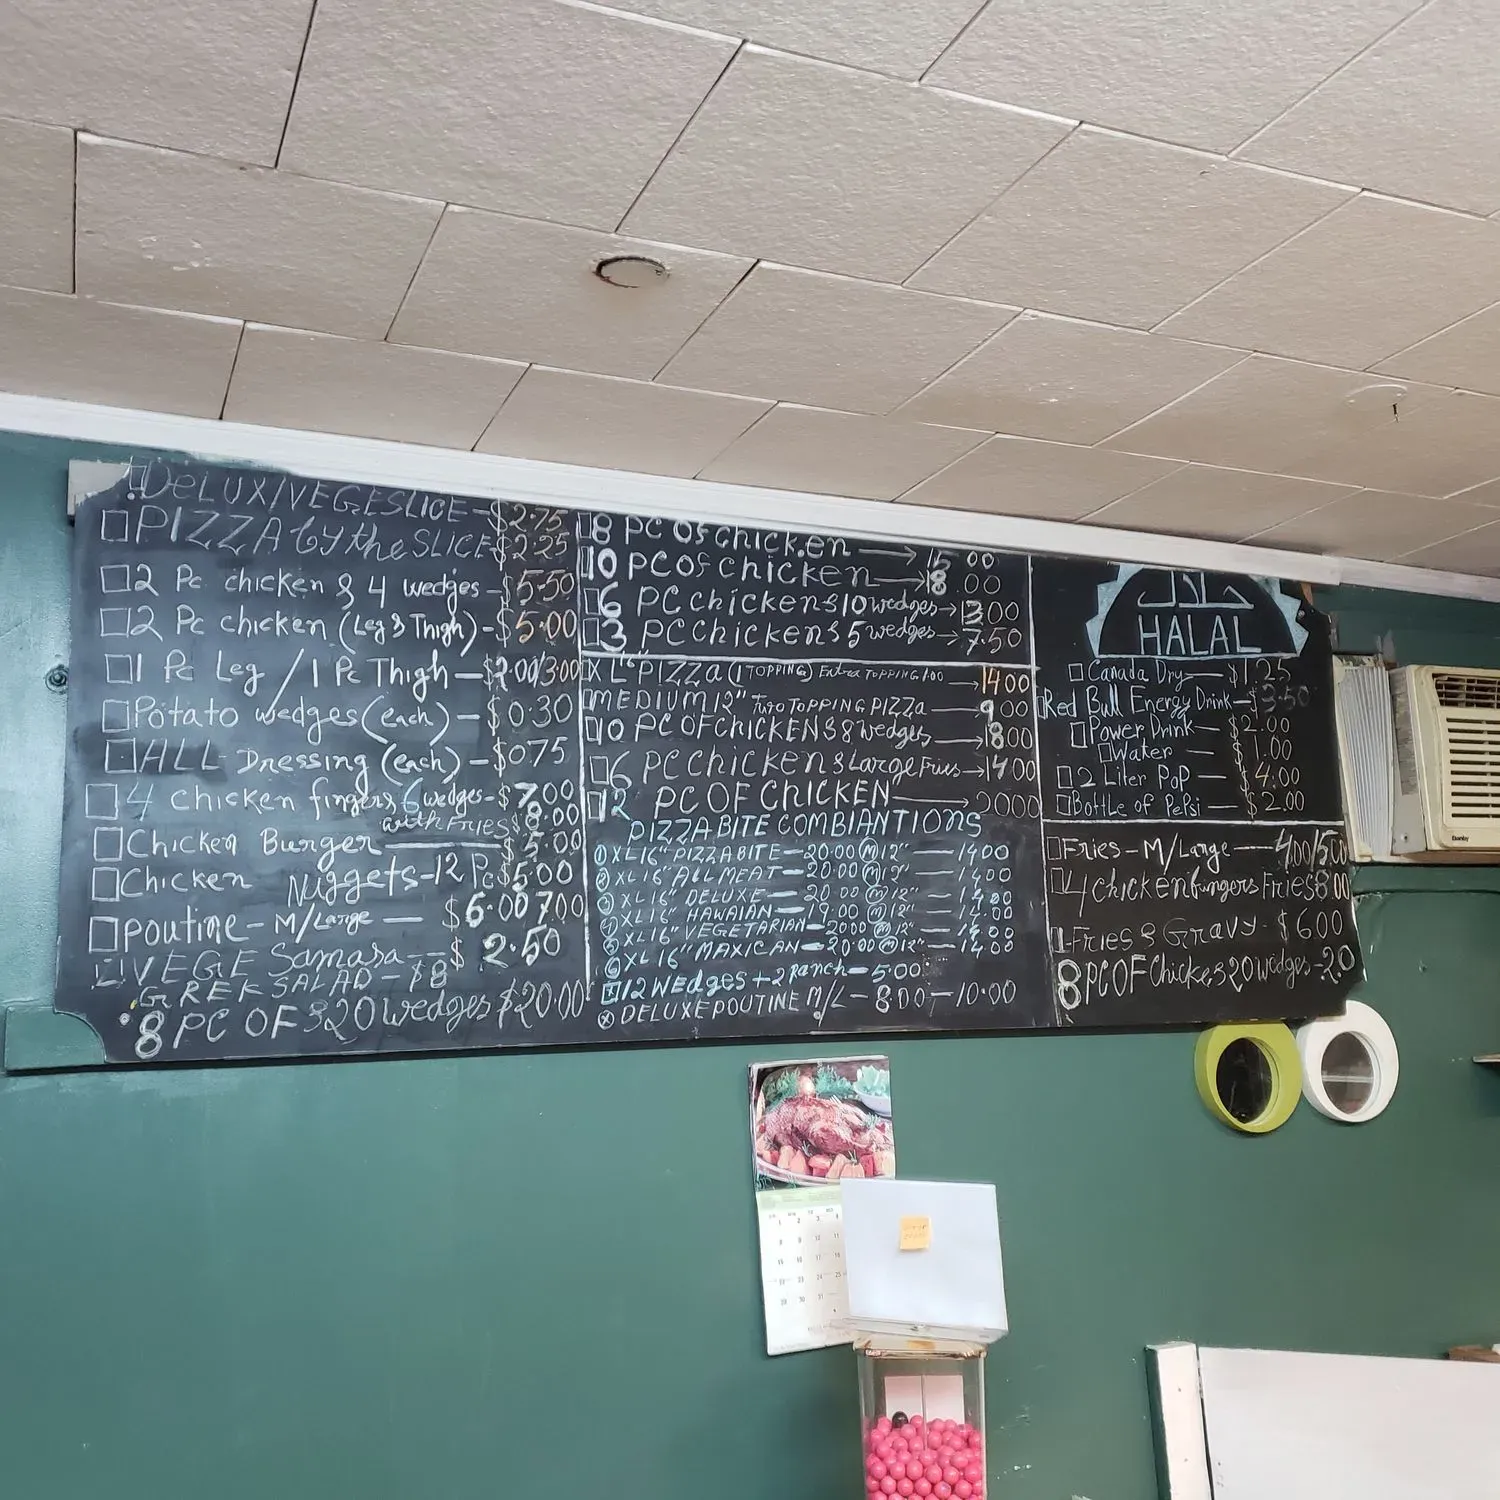 DELUX/VEGESLICE - $2.75
PIZZA by the SLICE $2.25
2 Pc chicken & 4 wedges - $5.50
2 Pc chicken (Leg & Thigh) - $5.00
1 Pc Leg / 1 Pc Thigh - $2.00/3.00
Potato wedges (each) - $0.30
ALL Dressing (each) - $075
4 chicken fingers 6 wedges - $7.00
with FRIES $8.00
Chicken Burger $5.00
Chicken Nuggets-12 Pc $5.00
poutine - M/Large - $6.00 700
VEGE Samasa - $2.50
GREK SALAD - $8
8 PC OF & 20 wedges $20.00
8 PC Of chicken → 15.00
10 PC Of chicken → 18.00
6 PC chicken & 10 wedges → 13.00
3 PC chicken & 5 wedges → 7.50
XL PIZZA (1 TOPPING) Extra TOPPING 1.00 → 1400
MEDIUM 12" Two TOPPING PIZZa → 9.00
10 PC OF CHICKEN & 8 wedges → 1800
6 PC chicken & Large Fries → 1400
12 PC OF CHICKEN → 2000
PIZZA BITE COMBIANTIONS
① XL 16" PIZZA BITE - 20.00 Ⓜ 12" - 1400
② XL 16" ALL MEAT - 20.00 Ⓜ 12" - 14.00
③ XL 16" DELUXE - 20.00 Ⓜ 12" - 14.00
XL 16" HAWAIAN - 19.00 Ⓜ 12" - 14.00
XL 16" VEGETARIAN - 2000 Ⓜ 12" - 14.00
⑥ XL 16" MAXICAN - 20.00 Ⓜ 12" - 14.00
12 WEDGES + 2 Ranch - 5.00
DELUXE POUTINE M/L - 8.00 - 10.00
HALAL
Canada Dry - $1.25
Red Bull Energy Drink - $3.50
Power Drink - $2.00
Water - $1.00
2 Liter PoP - $4.00
Bottle of PePsi - $2.00
Fries - M/Large - 4.00/5.00
4 chicken fungers Fries 8.00
Fries & Gravy - $6.00
8 PC OF Chicke & 20 wedges - 20